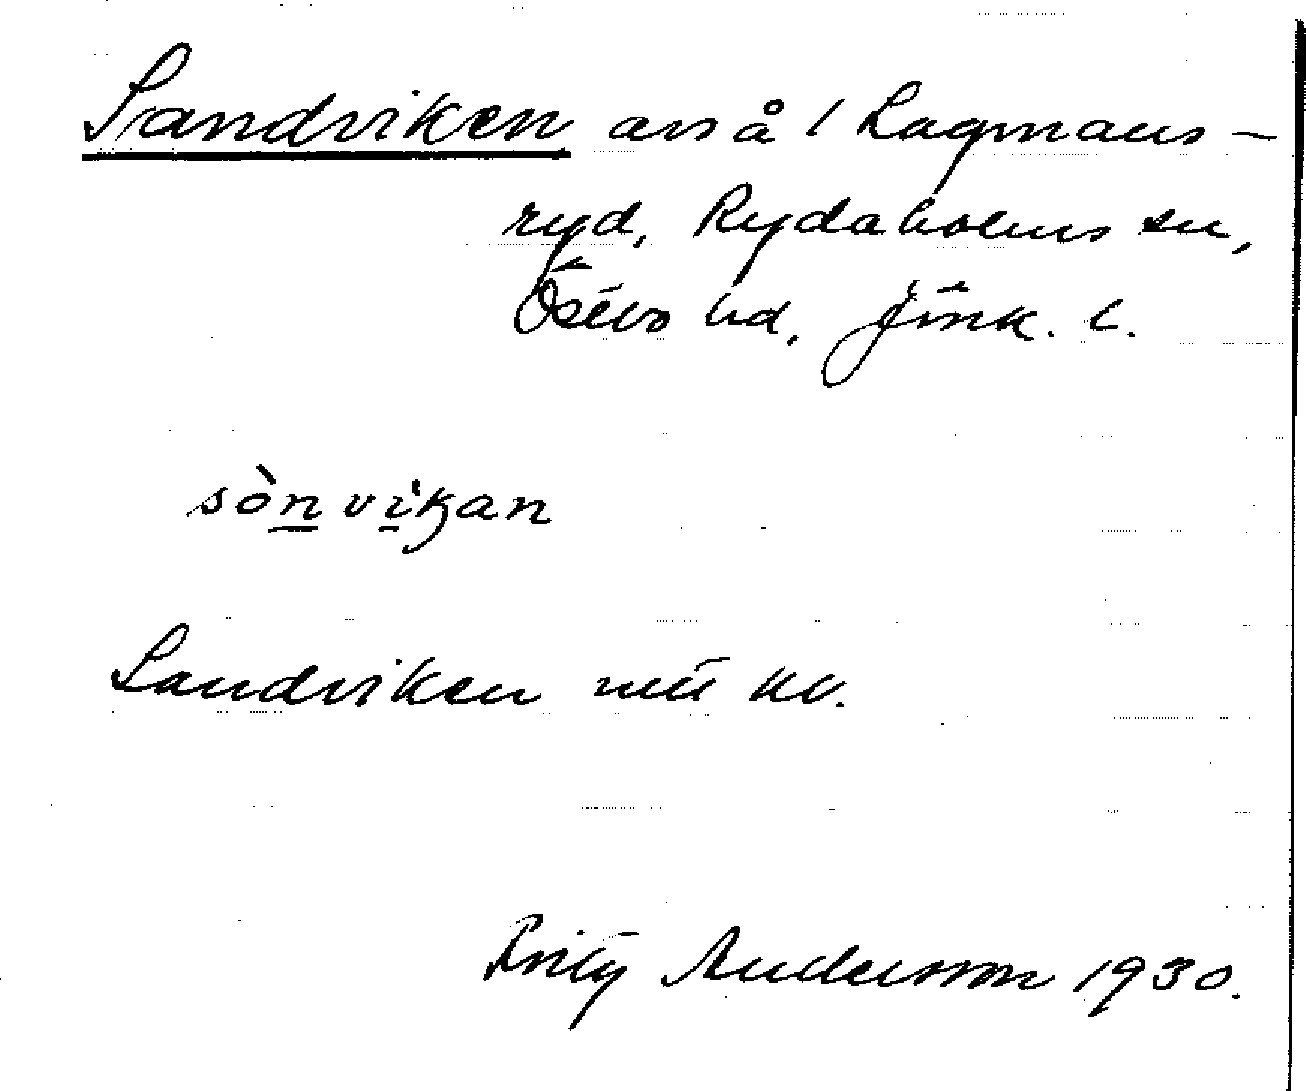 Sandviken avs å / Lagmans-
ryd, Rydaholms sn,
Östbo hd, Jönk. l.
sònvikan
Sandviken
Anderson 1930.